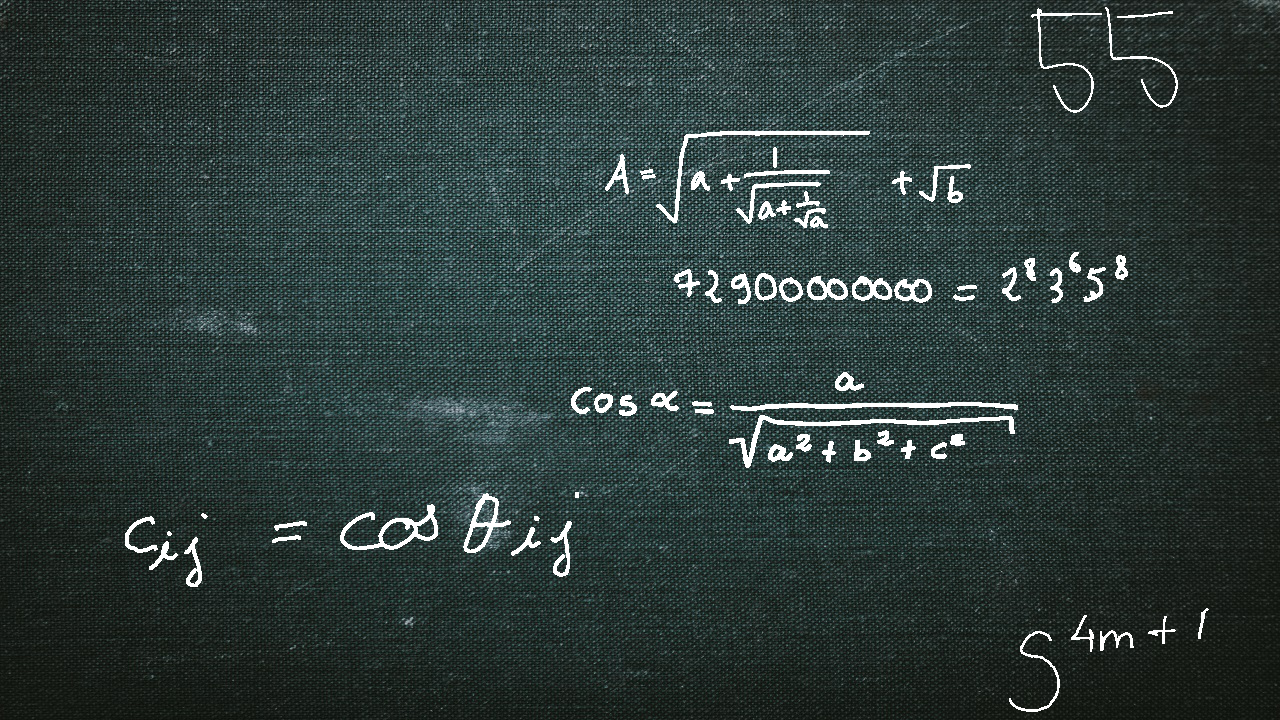 55
A = \sqrt{a + \frac{1}{\sqrt{a + \frac{1}{\sqrt{a}}}}} + \sqrt{b}
72900000000 = 2^8 3^6 5^8
cos α = \frac{a}{\sqrt{a^2 + b^2 + c^2}}
c_{ij} = cos θ_{ij}
S^{4m+1}